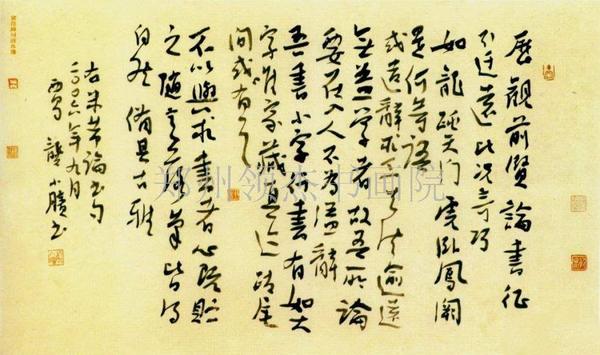 歷觀前賢論書征
引迂遠比况奇巧
如龍躍天門虎卧鳳闕
是何等語
或遣辭求工去法逾遠
無益學者故吾所論
要在入人不為溢辭
吾書小字行書有如大
字唯家藏真迹跋尾
間或有之
不以與求書者心既貯
之隨意落筆皆得
自然備其古雅
右米芾論书句
二〇〇六年九月
龔小书
郑州领杰书画院